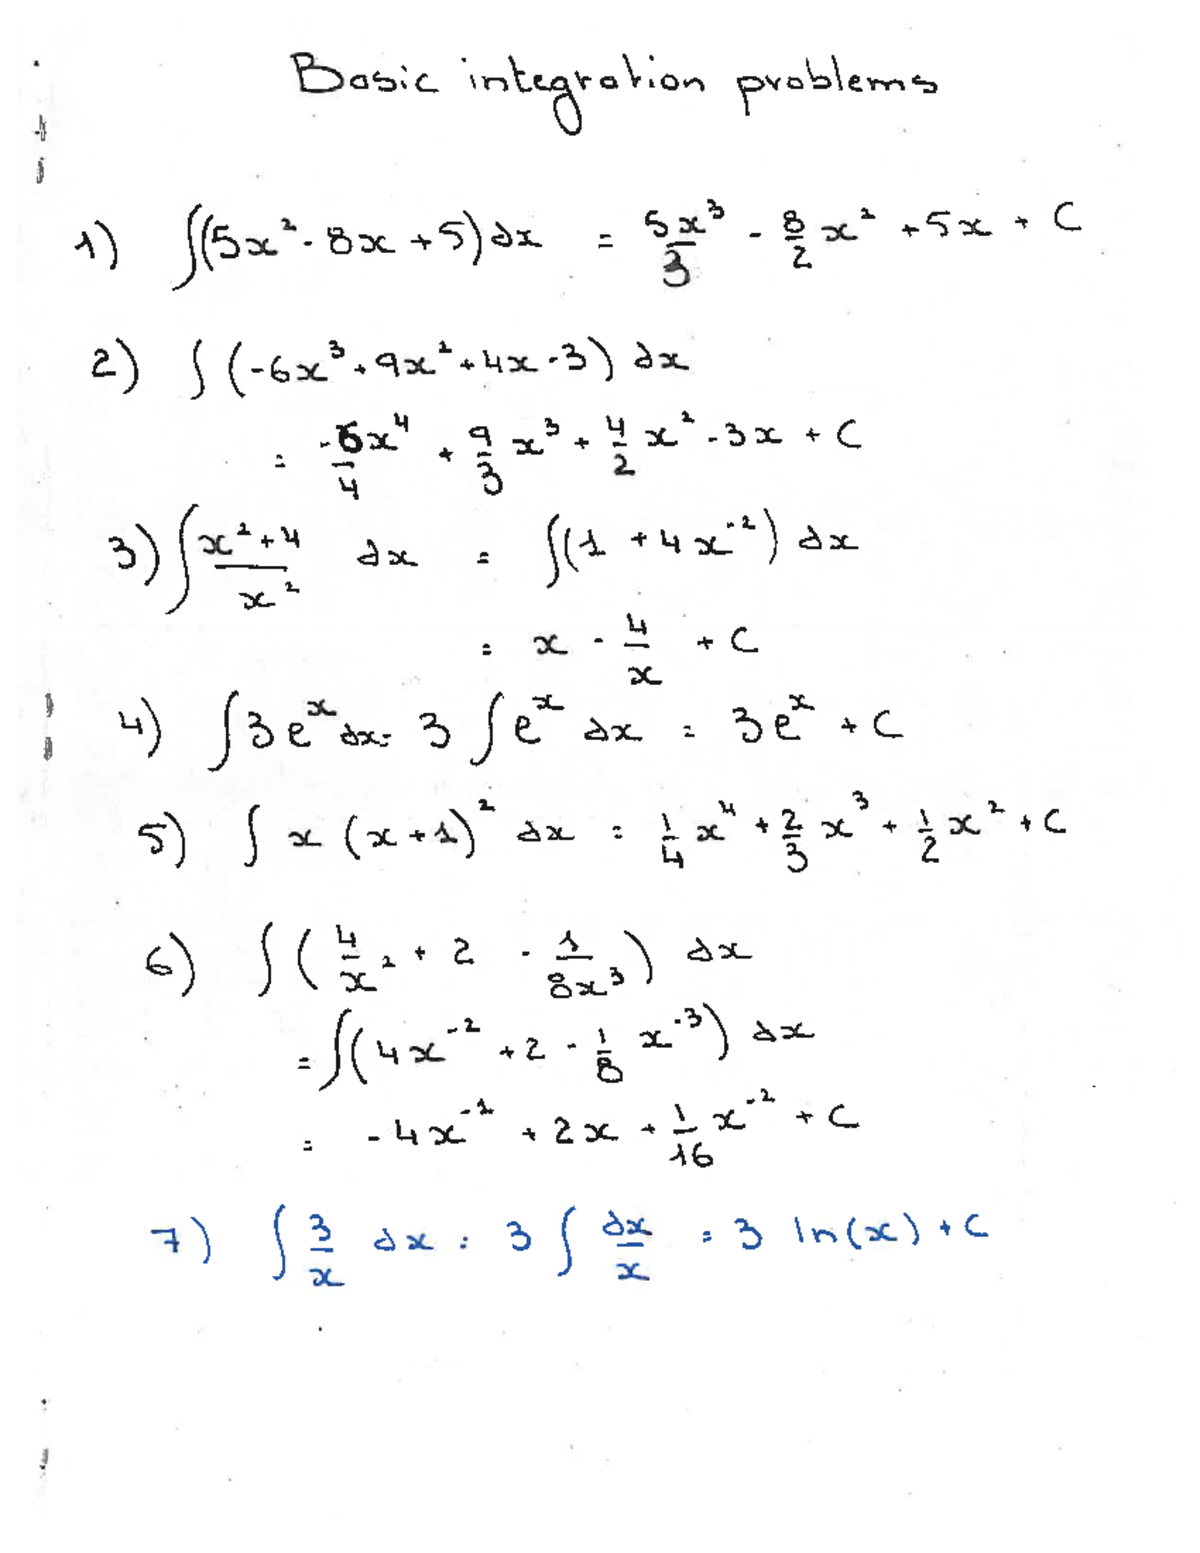 Basic integration problems
1) ∫(5x² - 8x + 5) dx = 5x³/3 - 8/2 x² + 5x + C
2) ∫ (-6x³ + 9x² + 4x - 3) dx
= -6x⁴/4 + 9/3 x³ + 4/2 x² - 3x + C
3) ∫ (x² + 4)/x² dx = ∫(1 + 4x⁻²) dx
= x - 4/x + C
4) ∫3eˣ dx = 3 ∫eˣ dx = 3eˣ + C
5) ∫ x (x + 1)² dx = 1/4 x⁴ + 2/3 x³ + 1/2 x² + C
6) ∫ (4/x² + 2 - 1/8x³) dx
= ∫(4x⁻² + 2 - 1/8 x⁻³) dx
= -4x⁻¹ + 2x + 1/16 x⁻² + C
7) ∫ 3/x dx = 3 ∫ dx/x = 3 ln(x) + C